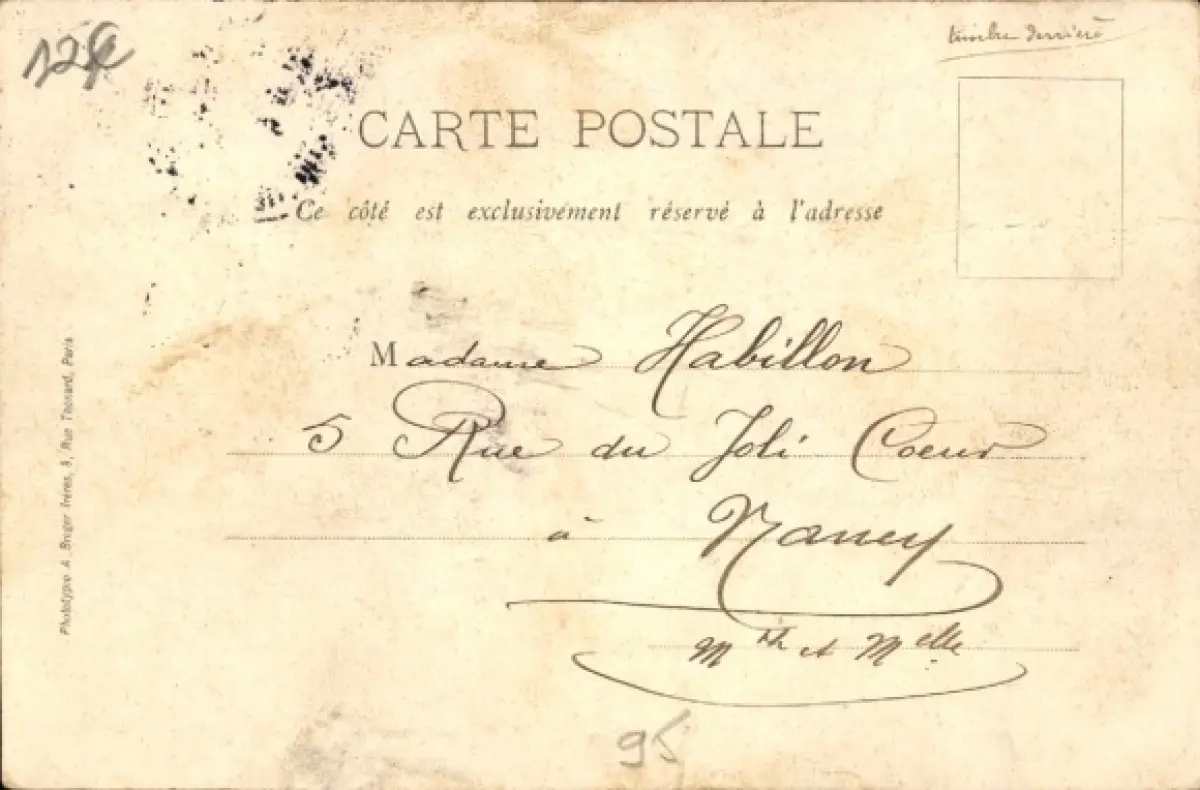 12€
timbre derrière
CARTE POSTALE
Ce côté est exclusivement réservé à l'adresse
Madame Habillon
5 Rue du Joli Coeur
à Nancy
Mthe et Melle
95
Phototypie A. Breger frères, 9, Rue Thénard, Paris